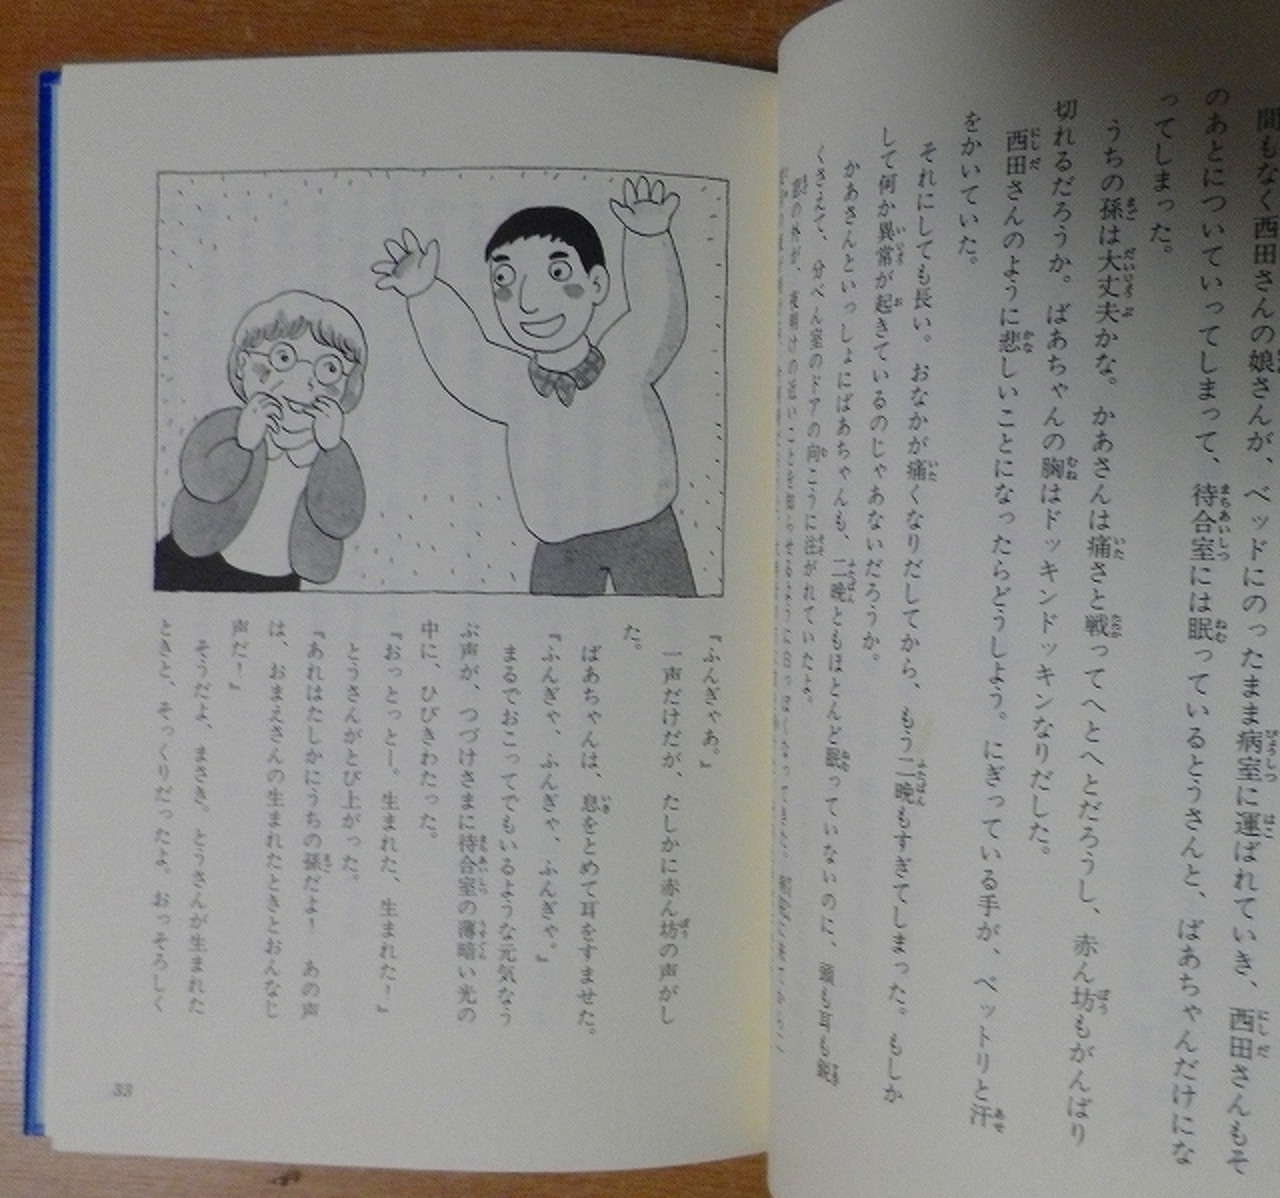 間もなく西田さんの娘さんが、ベッドにのったまま病室に運ばれていき、西田さんもそ
のあとについていってしまって、待合室には眠っているとうさんと、ばあちゃんだけにな
ってしまった。
うちの孫は大丈夫かな。かあさんは痛さと戦ってへとへとだろうし、赤ん坊もがんばり
切れるだろうか。ばあちゃんの胸はドッキンドッキンなりだした。
西田さんのように悲しいことになったらどうしよう。にぎっている手が、ベットリと汗
をかいていた。
それにしても長い。おなかが痛くなりだしてから、もう二晩もすぎてしまった。もしか
して何か異常が起きているのじゃあないだろうか。
かあさんといっしょにばあちゃんも、二晩ともほとんど眠っていないのに、頭も耳も鋭
くさえて、分べん室のドアの向こうに注がれていたよ。
『ふんぎゃあ。』
一声だけだが、たしかに赤ん坊の声がし
た。
ばあちゃんは、息をとめて耳をすませた。
『ふんぎゃ、ふんぎゃ、ふんぎゃ。』
まるでおこってでもいるような元気なう
ぶ声が、つづけさまに待合室の薄暗い光の
中に、ひびきわたった。
『おっとっとー。生まれた、生まれた！』
とうさんがとび上がった。
『あれはたしかにうちの孫だよ！　あの声
は、おまえさんの生まれたときとおんなじ
声だ！』
そうだよ、まさき。とうさんが生まれた
ときと、そっくりだったよ。おっそろしく
33